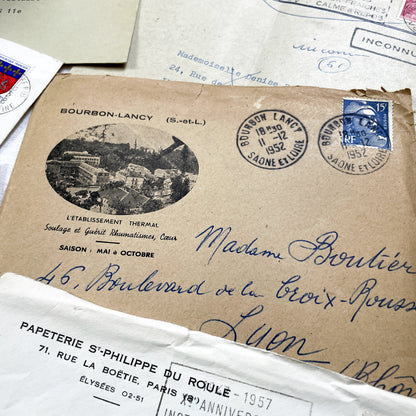 11e
CALME & REPOS
INCONNU
inconnu
Mademoiselle Denise
24, Rue de
BOURBON-LANCY (S.-et-L.)
L'ÉTABLISSEMENT THERMAL
Soulage et Guérit Rhumatismes, Cœur
SAISON : MAI à OCTOBRE
BOURBON LANCY
18H30
11 -12
1952
SAONE ET LOIRE
BOURBON LANCY
18H30
11 -12
1952
SAONE ET LOIRE
15F
RF
Madame Boutier
46, Boulevard de la Croix-Rouss
Lyon
(Rhô
PAPETERIE ST-PHILIPPE DU ROULE
71, RUE LA BOËTIE, PARIS (8e)
ÉLYSÉES 02-51
-1957
XE ANNIVERS